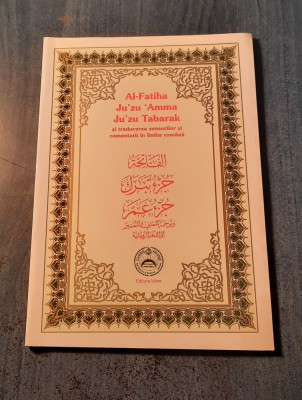 Al-Fatiha
Ju'zu 'Amma
Ju'zu Tabarak
și traducerea sensurilor și
comentarii în limba română
الفاتحة
جزء تبارك
جزء عم
Editura Islam